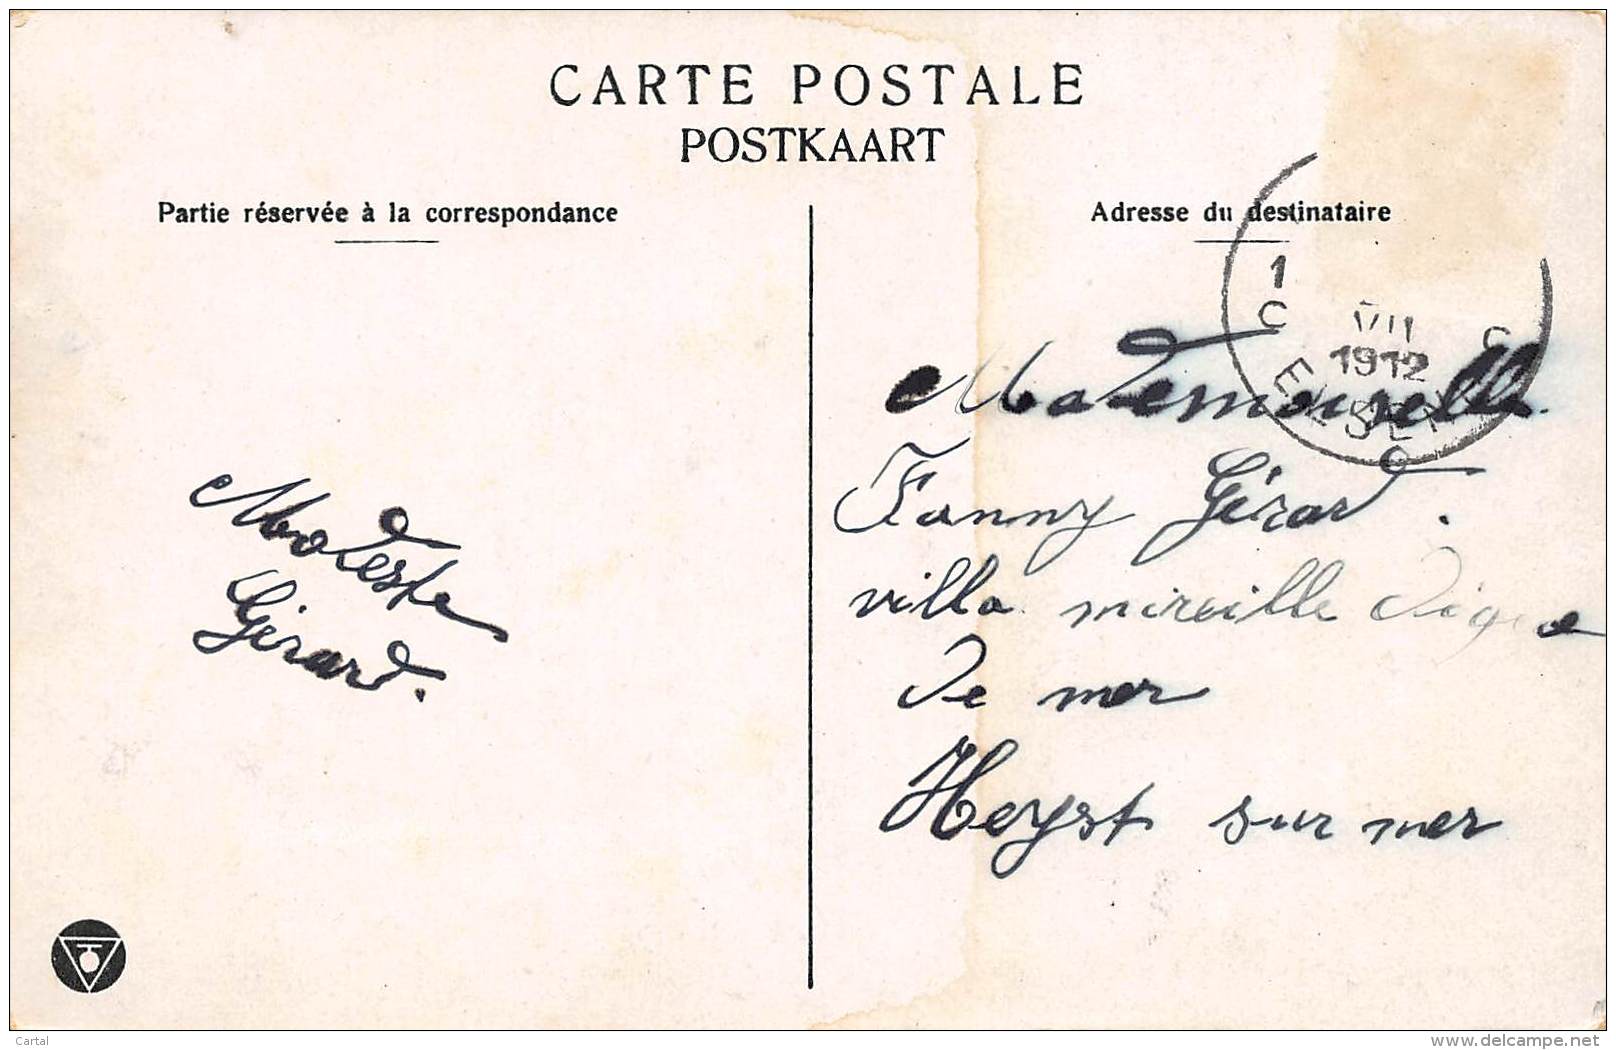 CARTE POSTALE
POSTKAART
Partie réservée à la correspondance
Adresse du destinataire
1
C C
VIII
1912
Modeste
Gérard.
Mademoiselle
Fanny Gérard.
villa mireille Digue
de mer
Heyst sur mer
Cartal
www.delcampe.net